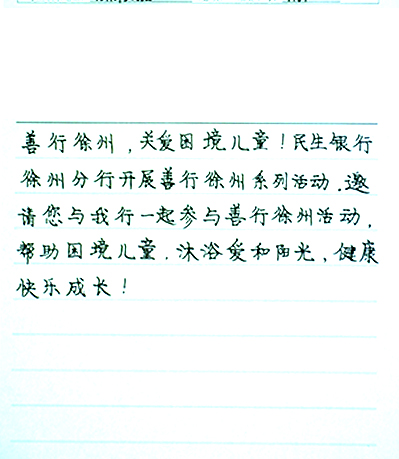 善行徐州，关爱困境儿童！民生银行
徐州分行开展善行徐州系列活动.邀
请您与我行一起参与善行徐州活动，
帮助困境儿童.沐浴爱和阳光，健康
快乐成长！